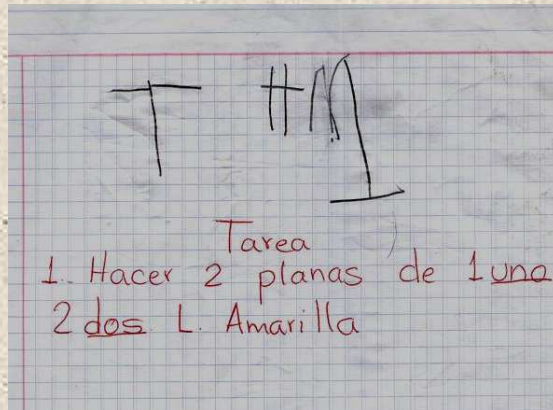 Tarea
1. Hacer 2 planas de 1 una
2 dos L. Amarilla